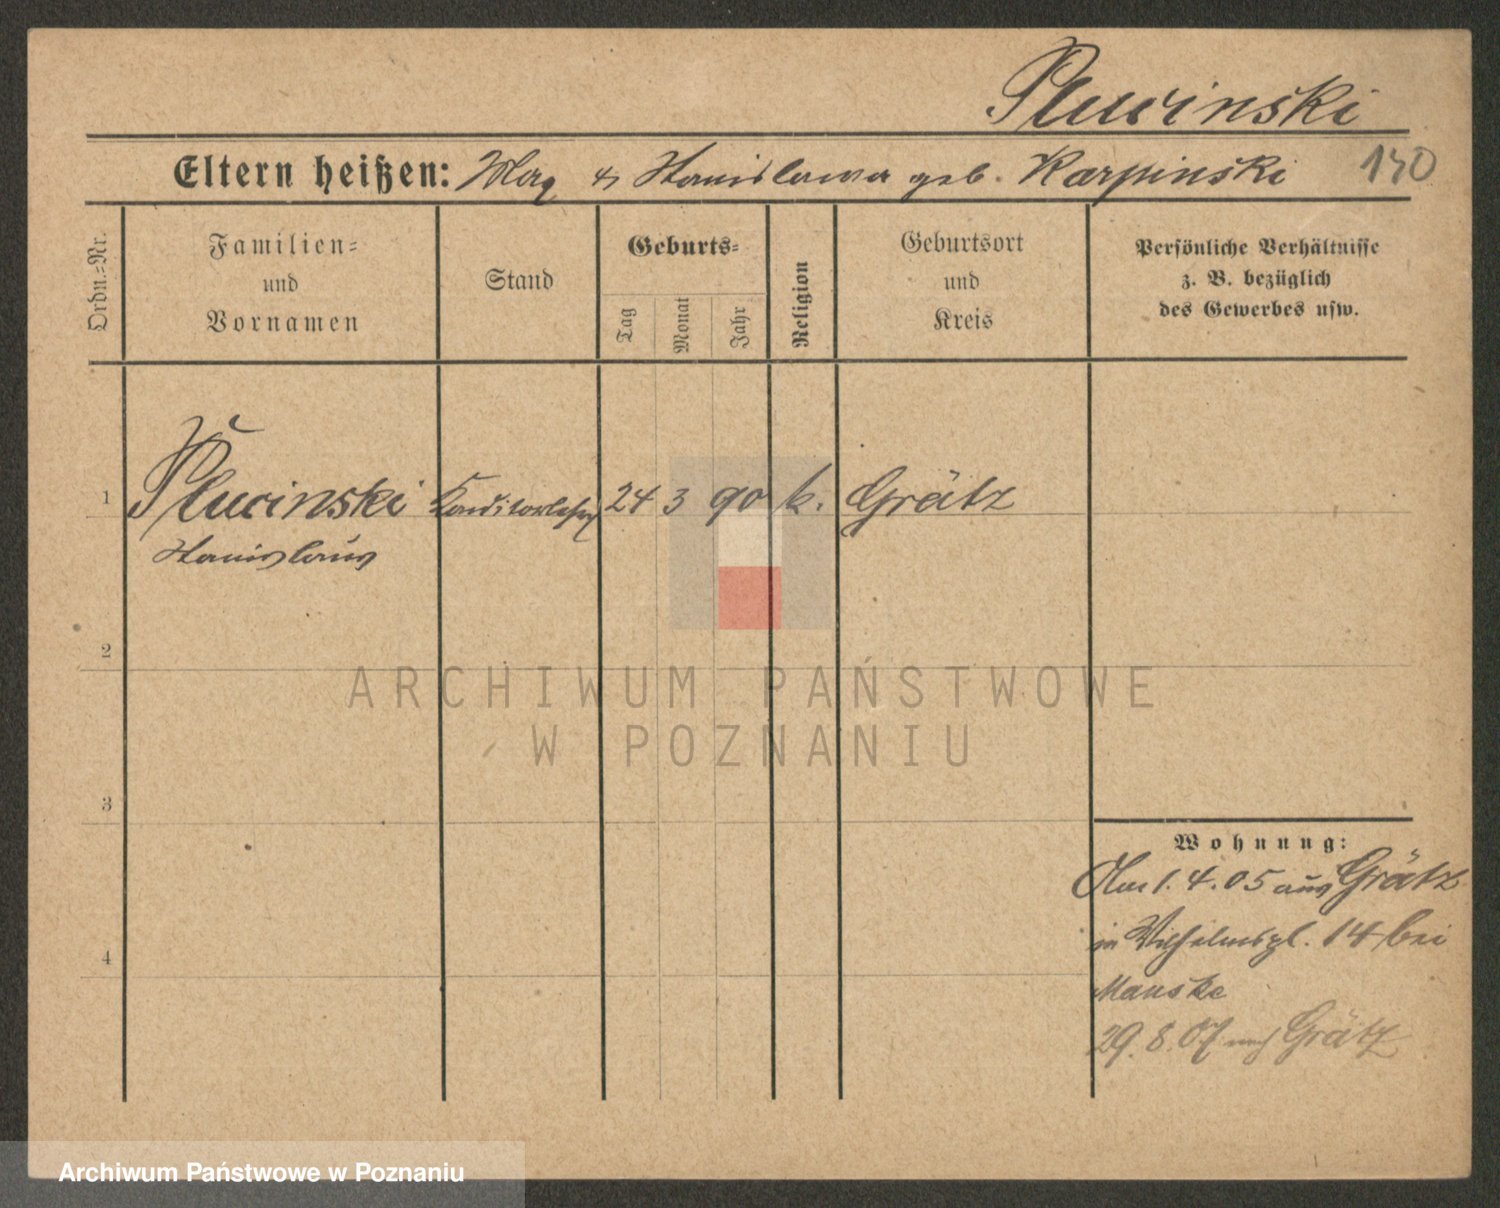 Plucinski
Eltern heißen: Max & Stanislawa geb. Karpinski 140
Ordn.=Nr.
Familien=
und
Vornamen
Stand
Geburts=
Tag
Monat
Jahr
Religion
Geburtsort
und
Kreis
Persönliche Verhältnisse
z. B. bezüglich
des Gewerbes usw.
1 Plucinski Konditorlehrg 24 3 90 k. Grätz
Stanislaus
2
ARCHIWUM PAŃSTWOWE
W POZNANIU
3
Wohnung:
1. 4. 05 aus Grätz
in Wilhelmspl. 14 bei
Manske
4
29. 8. 07 nach Grätz
Archiwum Państwowe w Poznaniu